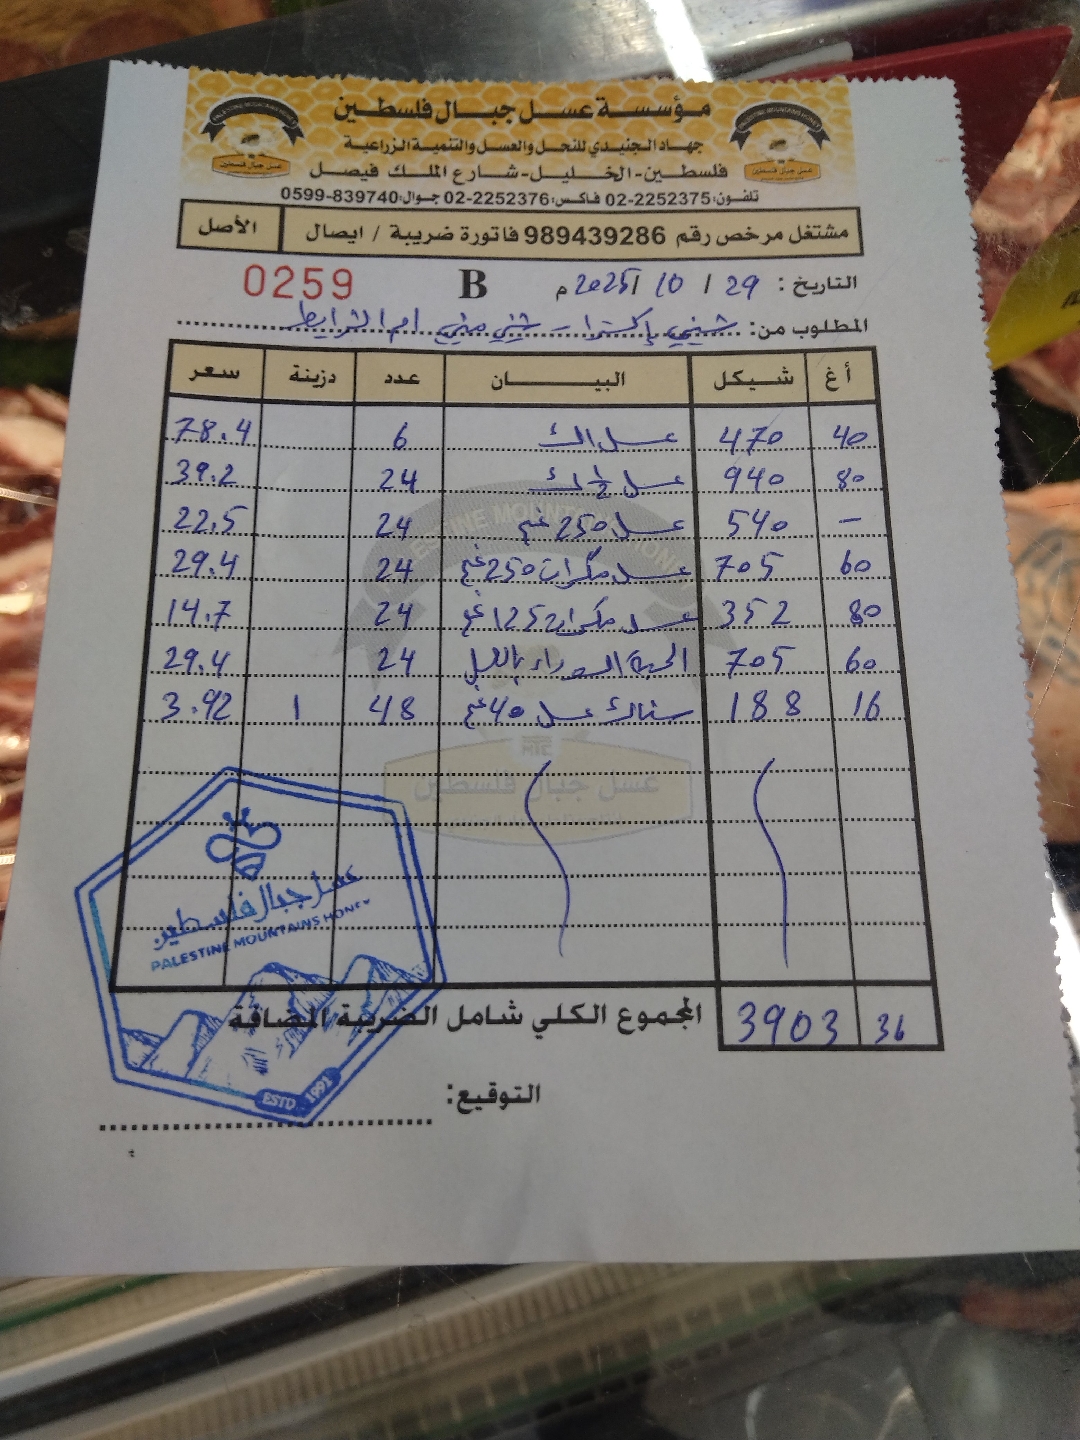 مؤسسة عسل جبال فلسطين
جهاد الجنيدي للنحل والعسل والتنمية الزراعية
فلسطين - الخليل - شارع الملك فيصل
تلفون: 02-2252375 فاكس: 02-2252376 جوال: 0599-839740
مشتغل مرخص رقم 989439286 فاتورة ضريبة / ايصال الأصل
التاريخ: 29 / 10 / 2025 م B 0259
المطلوب من: شني إكسترا - شني مني ام الشرايط
أغ شيكل البيـــان عدد دزينة سعر
40 470 عسل 1ك 6 78.4
80 940 عسل 1/2 ك 24 39.2
- 540 عسل 250 غم 24 22.5
60 705 عسل مكسرات 250 غم 24 29.4
80 352 عسل مكسرات 125 غم 24 14.7
60 705 الحبة السوداء بالعسل 24 29.4
16 188 سناك عسل 40 غم 48 1 3.92
عسل جبال فلسطين
عسل جبال فلسطين
PALESTINE MOUNTAINS HONEY
ESTD 1991
المجموع الكلي شامل الضريبة المضافة 3903 36
التوقيع: